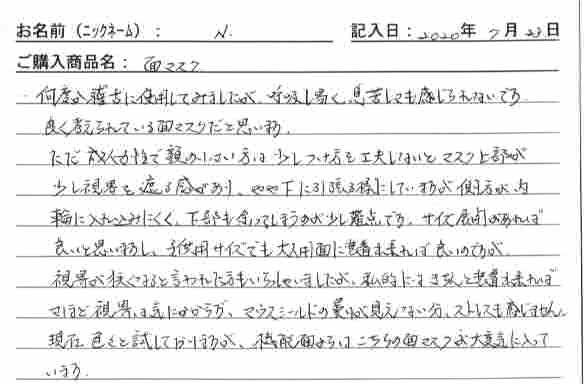 お名前（ニックネーム）： N. 記入日：2020年 7月 23日
ご購入商品名：面マスク
何度か稽古に使用してみましたが、呼吸し易く、息苦しさも感じられないです。
良く考えられている面マスクだと思います。
ただ 成人女性で顔が小さい方は 少しつけ方を工夫しないと マスク上部が
少し視界を遮る感があり、やや下に引張る様にしていますが 側方が内
輪に入れ込みにくく、下部も余ってしまうのが少し難点です。サイズ展開があれば
良いと思いますし、子供用サイズでも大人用面に装着出来れば良いのですが。
視界が狭くなると言われた方もいらっしゃいましたが、私的には きちんと装着出来れば
さほど視界は気にかからず、マウスシールドの曇りが見えない分、ストレスも感じません。
現在 色々と試しておりますが、機能面からは こちらの面マスクが大変気に入って
います。